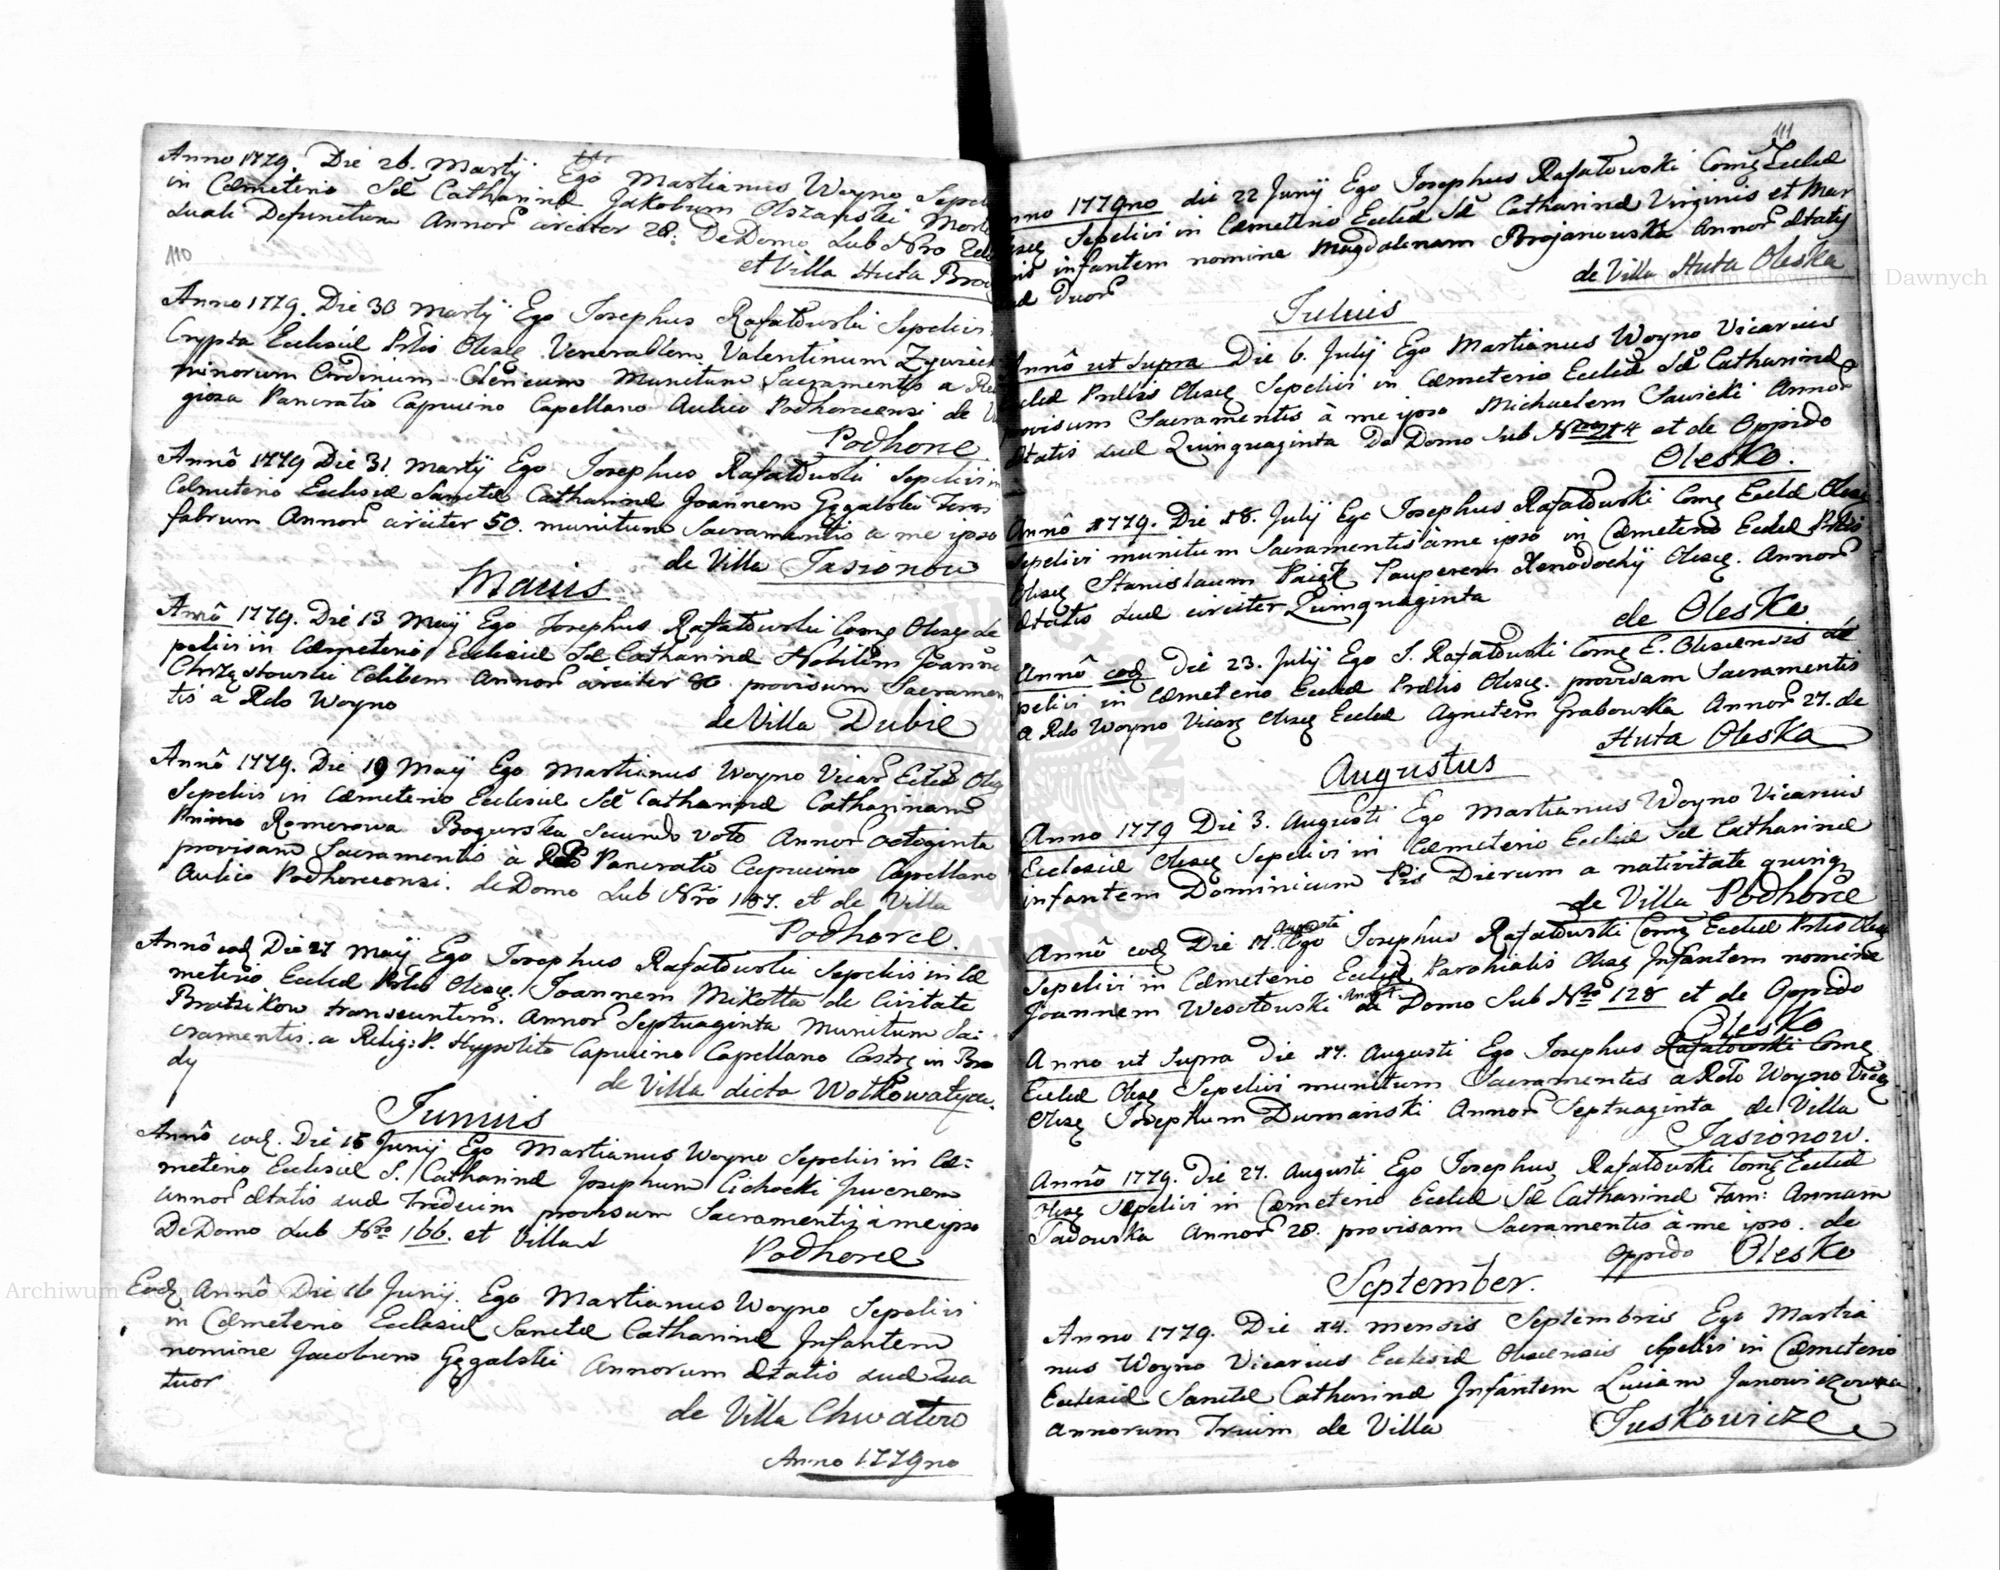 Anno 1779. Die 26. Martij Ego Martianus Woyno Sepeli
in Cæmeterio Sæ Catharinæ Jakobum Olszanski Morte
suali Defunctum Annor circiter 28: De Domo Sub Nro
et Villa Huta Brod
110
Anno 1779. Die 30 Martij Ego Josephus Rafałowski Sepelivi
Crypta Ecclesiæ Prlis Olesc. Venerablem Valentinum
minorum Ordinum Clericum Munitum Sacramentis a Reli
giosa Pancratio Capucino Capellano Aulico Podhorcensi de
Podhorce
Annô 1779 Die 31. Martij Ego Josephus Rafałowski Sepelivi in
Cæmeterio Ecclesiæ Sanctæ Catharinæ Joannem Gęgalski Ferri
fabrum Annor circiter 50. munitum Sacramentis a me ipso
de Villa Jasionow
Maius
Annô 1779. Die 13 Maij Ego Josephus Rafałowski Come Olesce Se
pelivi in Cæmpeterio Ecclesiæ Sæ Catharinæ Nobilem Joanne
Chrząstowski Cælibem Annor circiter 80 provisum Sacramen
tis a Rdo Woyno
de Villa Dubie
Annô 1779. Die 19 Maij Ego Martianus Woyno Vicar Eccles Olesc
Sepelivi in Cæmeterio Ecclesiæ Sæ Catharinæ Catharinam
Primo Romerowa Bogurska Secundo Voto Annor Octoginta
provisam Sacramentis à Rdo Pancratio Capucino Capellano
Aulico Podhorcensi. de Domo Sub Nrô 187. et de Villa
Podhorce.
Annô eod Die 27 Maij Ego Josephus Rafałowski Sepelivi in Cæ
meterio Ecclæ Prlis Olesce. Joannem Mikotta de Civitate
Brutzikow transeuntem. Annor Septuaginta Munitum Sa:
cramentis. a Relig: P. Hyppolito Capucino Capellano Castre in Bro
dy
de Villa dicta Wołkowatyca.
Junius
Annô eod. Die 15 Junij Ego Martianus Woyno Sepelivi in Cæ:
meterio Ecclesiæ S. Catharinæ Josephum Cichocki Juvenem
Annor ætatis suæ Tredecim provisum Sacramentis à me ipso
De Domo Sub Nro 166. et Villa
Podhorce
Eod Annô Die 16 Junij. Ego Martianus Woyno Sepelivi
in Cæmeterio Ecclesiæ Sanctæ Catharinæ Infantem
nomine Jacobum Gęgalski Annorum ætatis suæ Qua
tuor
de Villa Chwatow
Anno 1779no
111
nno 1779no die 22 Junij Ego Josephus Rafałowski Come Ecclæ
Olesce Sepelivi in Cæmeterio Ecclæ Sæ Catharinæ Virginis et Mar
tiris infantem nomine Magdalenam Brojanowska Annor ætatis
suæ Duor
de Villa Huta Oleska
Julius
Annô ut supra Die 6. Julij Ego Martianus Woyno Vicarius
Ecclæ Prælis Olesce Sepelivi in Cæmeterio Ecclæ Sæ Catharinæ
provisum Sacramentis à me ipso Michaelem Sawicki Annor
ætatis suæ Quinquaginta De Domo Sub Nro 214 et de Oppido
Olesko.
Annô 1779. Die 18. Julij Ego Josephus Rafałowski Come Ecclæ Olesce
Sepelivi munitum Sacramentis à me ipso in Cæmeterio Ecclæ Prlis
Olesce Stanislaum Paiek Pauperem Xenodochij Olesce. Annor
ætatis suæ circiter Quinquaginta
de Olesko
Annô eod Die 23. Julij Ego J. Rafałowski Come E. Olescensis Se
pelivi in Cæmeterio Ecclæ Prælis Olesce. provisam Sacramentis
a Rdo Woyno Vicare Olesce Ecclæ Agnetem Grabowska Annor 27. de
Huta Oleska
Augustus
Anno 1779 Die 3. Augusti Ego Martianus Woyno Vicarius
Ecclesiæ Olesce Sepelivi in Cæmeterio Ecclesiæ Sæ Catharinæ
infantem Dominicum Pis Dierum a nativitate quinq
de Villa Podhorce
Annô eod Die 17. Augusti Ego Josephus Rafałowski Come Ecclæ Prlis Olesce
Sepelivi in Cæmeterio Ecclæ Parohialis Olesce Infantem nomine
Joannem Wesołowski de Domo Sub Nro 128 et de Oppido
Olesko
Anno ut Supra Die 17. Augusti Ego Josephus Rafałowski Come
Ecclæ Olesce Sepelivi munitum Sacramentis à Rdo Woyno Vica
Olesce Josephum Dumański Annor Septuaginta de Villa
Jasionow.
Annô 1779. Die 27. Augusti Ego Josephus Rafałowski Come Ecclæ
Olesce Sepelivi in Cæmeterio Ecclæ Sæ Catharinæ Fam: Annam
Sadowska Annor 28. provisam Sacramentis à me ipso. de
Oppido Olesko
September.
Anno 1779. Die 14. mensis Septembris Ego Martia
nus Woyno Vicarius Ecclesiæ Olescensis Sepelivi in Cæmeterio
Ecclesiæ Sanctæ Catharinæ Infantem Luciam Janowiczowna
Annorum Trium de Villa
Juskowicze
Archiwum Główne Akt Dawnych